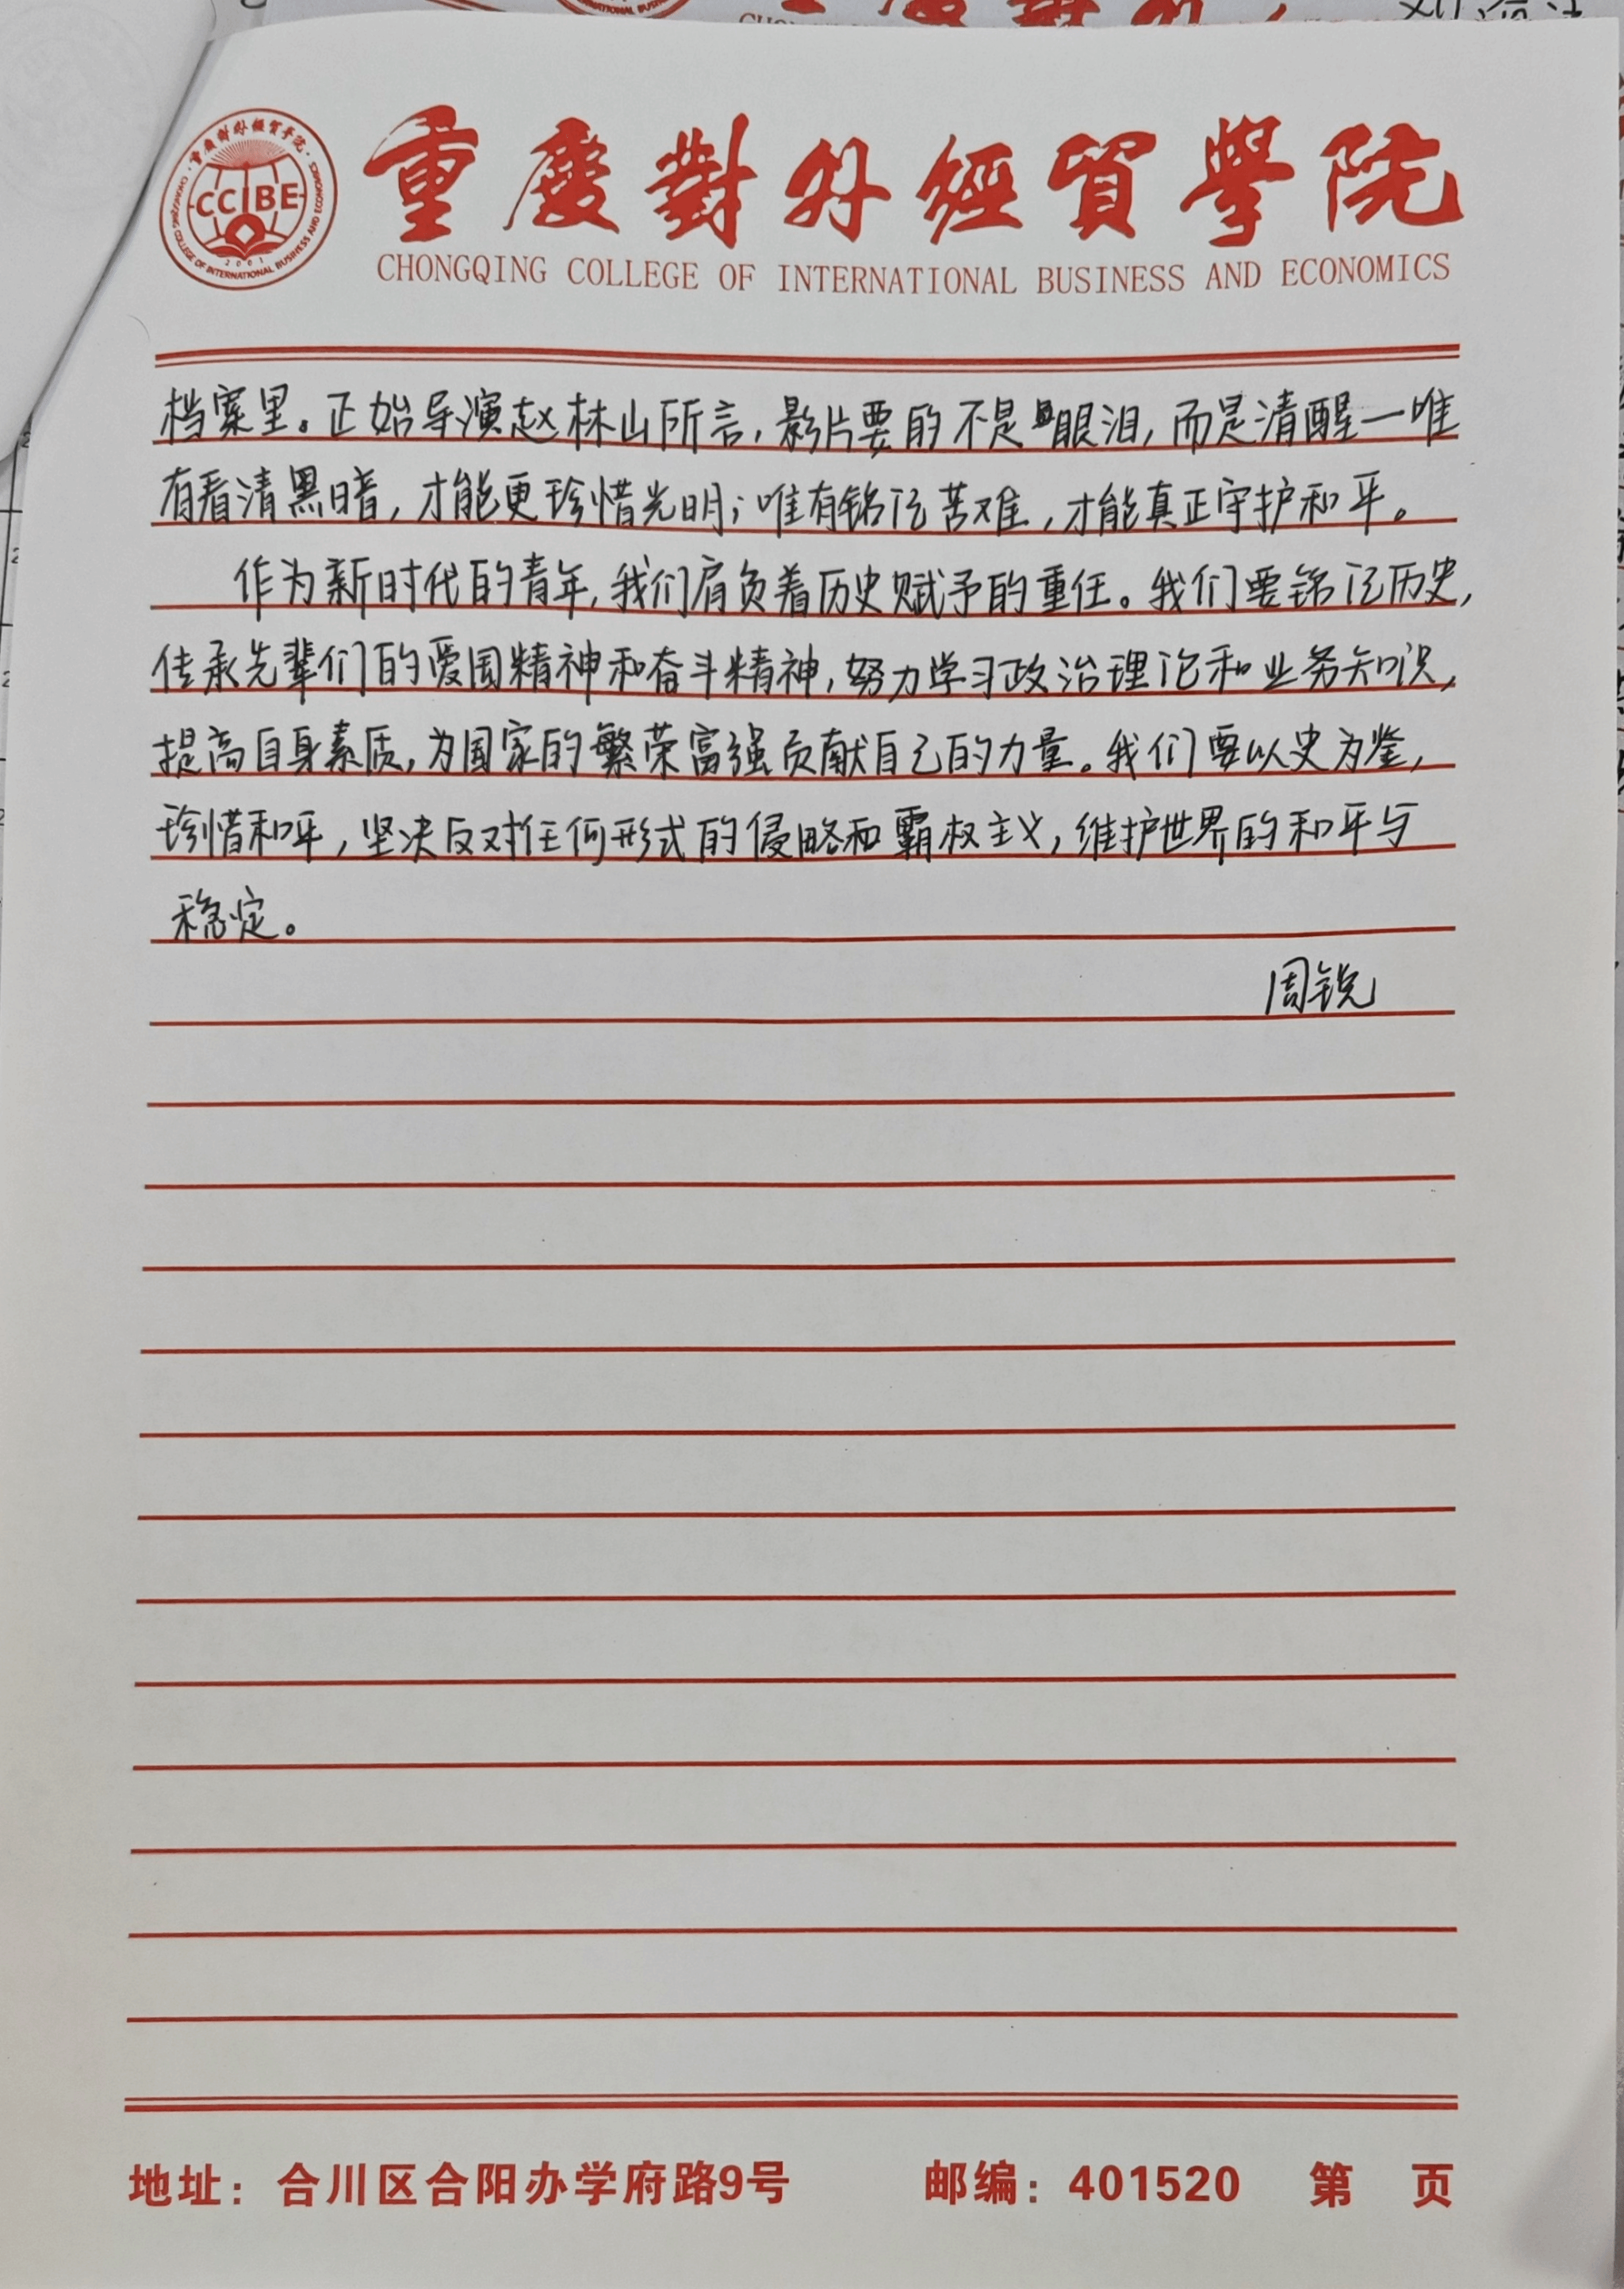 重慶對外經貿學院
CCIBE
2001
CHONGQING COLLEGE OF INTERNATIONAL BUSINESS AND ECONOMICS
档案里。正始导演赵林山所言,影片要的不是眼泪,而是清醒一唯
有看清黑暗,才能更珍惜光明;唯有铭记苦难,才能真正守护和平。
作为新时代的青年,我们肩负着历史赋予的重任。我们要铭记历史,
传承先辈们的爱国精神和奋斗精神,努力学习政治理论和业务知识,
提高自身素质,为国家的繁荣富强贡献自己的力量。我们要以史为鉴,
珍惜和平,坚决反对任何形式的侵略和霸权主义,维护世界的和平与
稳定。
周锐
地址:合川区合阳办学府路9号 邮编:401520 第 页